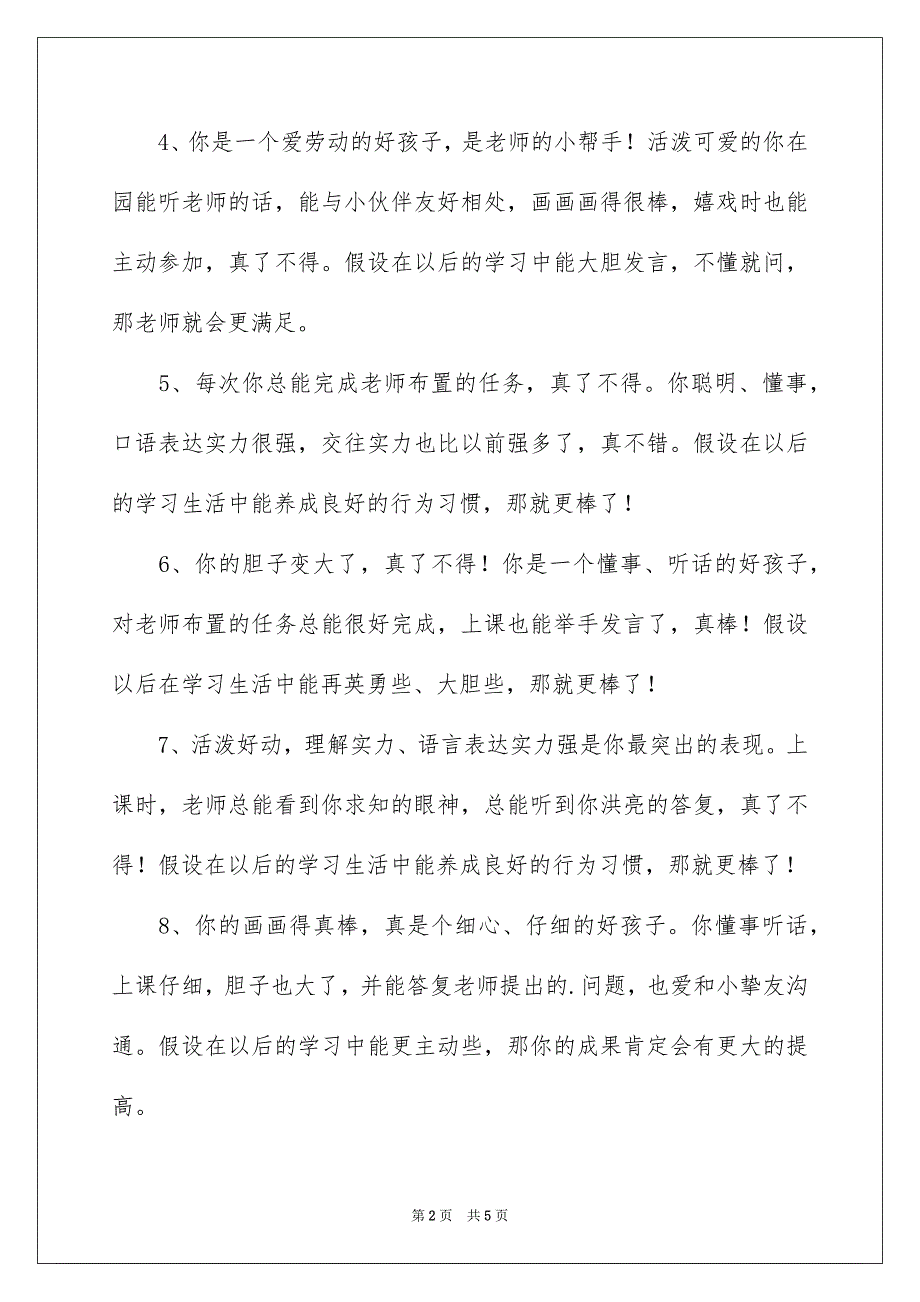 4、你是一个爱劳动的好孩子，是老师的小帮手！活泼可爱的你在
园能听老师的话，能与小伙伴友好相处，画画画得很棒，嬉戏时也能
主动参加，真了不得。假设在以后的学习中能大胆发言，不懂就问，
那老师就会更满足。
5、每次你总能完成老师布置的任务，真了不得。你聪明、懂事，
口语表达实力很强，交往实力也比以前强多了，真不错。假设在以后
的学习生活中能养成良好的行为习惯，那就更棒了！
6、你的胆子变大了，真了不得！你是一个懂事、听话的好孩子，
对老师布置的任务总能很好完成，上课也能举手发言了，真棒！假设
以后在学习生活中能再英勇些、大胆些，那就更棒了！
7、活泼好动，理解实力、语言表达实力强是你最突出的表现。上
课时，老师总能看到你求知的眼神，总能听到你洪亮的答复，真了不
得！假设在以后的学习生活中能养成良好的行为习惯，那就更棒了！
8、你的画画得真棒，真是个细心、仔细的好孩子。你懂事听话，
上课仔细，胆子也大了，并能答复老师提出的.问题，也爱和小挚友沟
通。假设在以后的学习中能更主动些，那你的成果肯定会有更大的提
高。
第 2 页 共 5 页